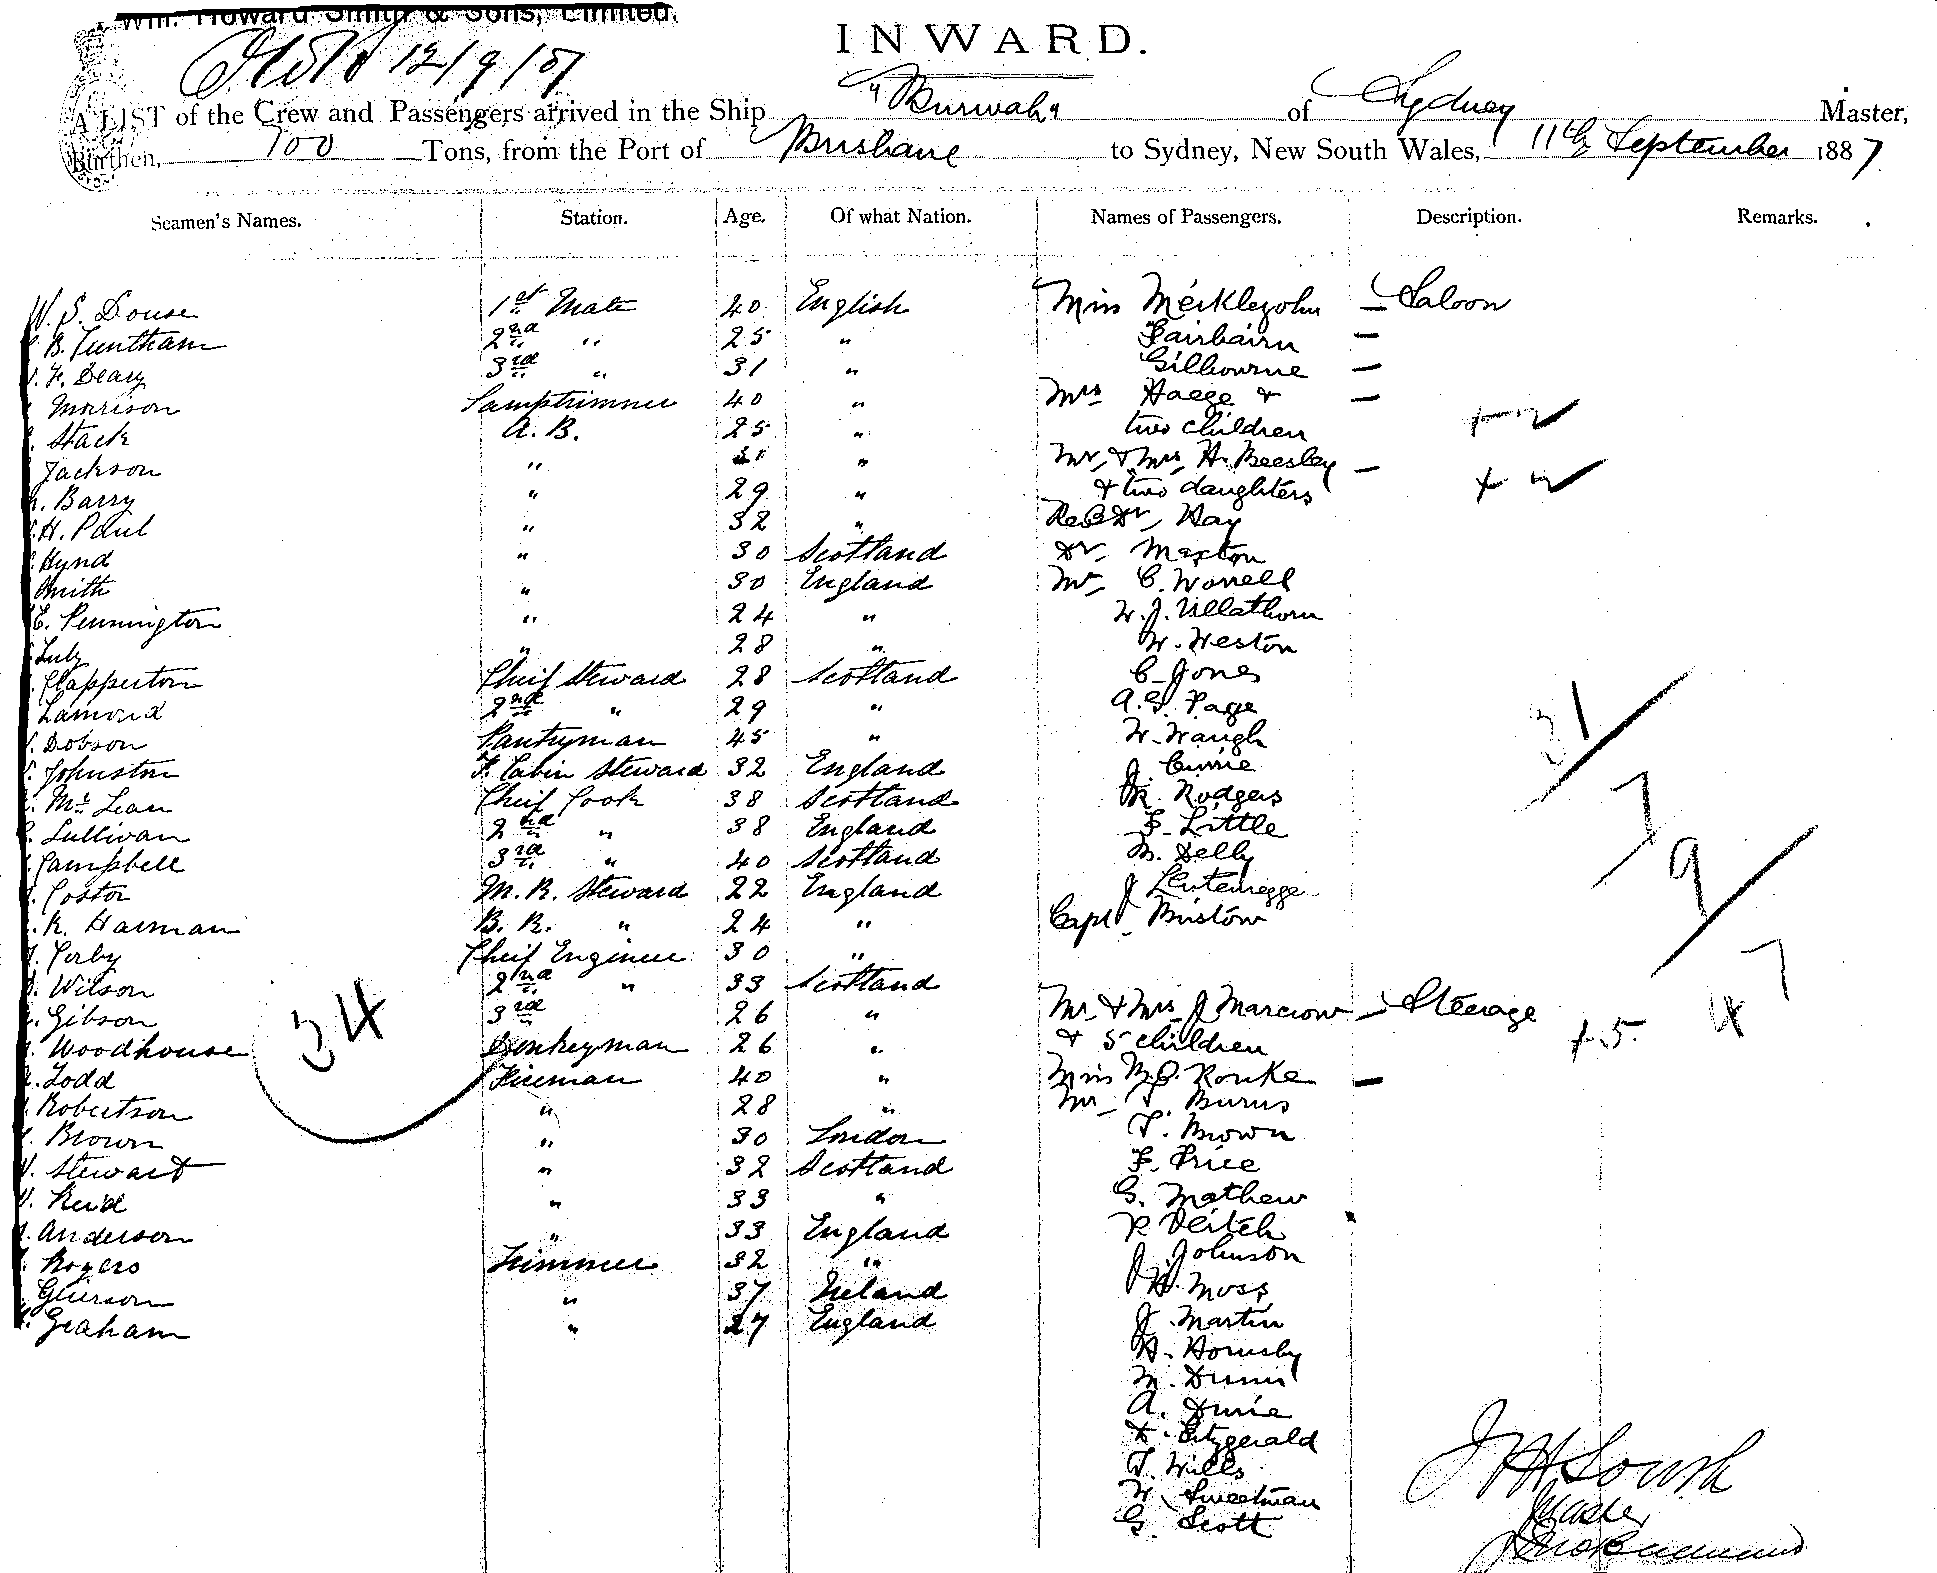 Wm. Howard Smith & Sons, Limited.
INWARD.
12/9/87
A LIST of the Crew and Passengers arrived in the Ship "Burwah" of Sydney Master,
Burthen, 700 Tons, from the Port of Brisbane to Sydney, New South Wales, 11th September 1887.
Seamen's Names. Station. Age. Of what Nation. Names of Passengers. Description. Remarks.
W. S. Douse 1st Mate 40 English Miss Meiklejohn — Saloon
B. Tuntham 2nd " 25 " Fairbairn —
F. Deary 3rd " 31 " Gilbourne —
Morrison Lamptrimmer 40 " Mrs Haege & —
Stack A. B. 25 " two children + 2
Jackson " " Mr. & Mrs. H. Beesley —
Barry " 29 " & two daughters + 2
H. Paul " 32 " Hay
Hynd " 30 Scotland Dr. Maxton
Smith " 30 England Mr. C. Worrell
E. Pennington " 24 " W. J. Ullathorn
Luby " 28 " W. Weston
Clapperton Cheif Steward 28 Scotland C. Jones
Lamond 2nd " 29 " A. G. Page
Dobson Pantryman 45 " W. Waugh
Johnston F. Cabin Steward 32 England J. Currie
McLean Cheif Cook 38 Scotland R. Rodgers
Sullivan 2nd " 38 England F. Little
Campbell 3rd " 40 Scotland M. Delly
Costor M. R. Steward 22 England J.
R. Harman B. R. " 24 " Capt. Bristow
Corby Cheif Engineer 30 "
Wilson 2nd " 33 Scotland
Gibson 3rd 26 " Mr. & Mrs. J. Marcrow — Steerage
Woodhouse Donkeyman 26 " & 5 children + 5
Todd Fireman 40 " Miss M. O. Rourke —
Robertson " 28 " Mr. T. Burns
Brown " 30 London T. Brown
Stewart " 32 Scotland F. Price
Reid " 33 " G. Mathew
Anderson " 33 England R. Veitch
Rogers Trimmer 32 " J. Johnson
Glierson " 37 Ireland H. Moss
Graham " 27 England J. Martin
H. Hornsby
M. Dunn
A. Durie
D. Fitzgerald
T. Wills
W. Sweetman
G. Scott
34
31
7
9
47
Master